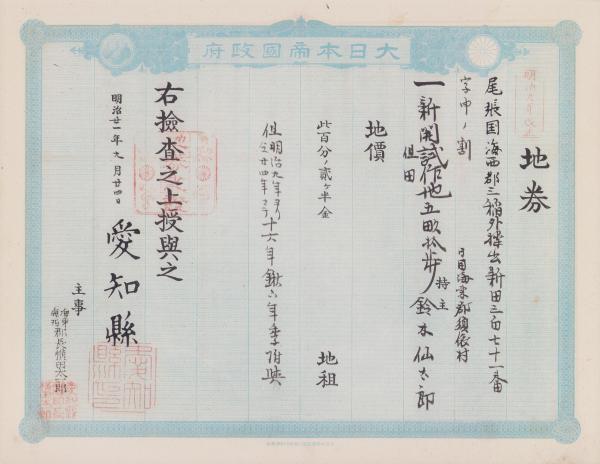 府政國帝本日大
地券
尾張国海西郡三稲外操出新田三百七十一番
字中ノ割
一新開試作地五畝拾歩
但田
持主
鈴木仙太郎
地價
此百分ノ貳ヶ半金
地租
但明治九年ヨリ
仝廿四年マテ
十六年鍬六年季附與
右檢査之上授與之
明治廿一年九月廿四日
愛知縣
主事